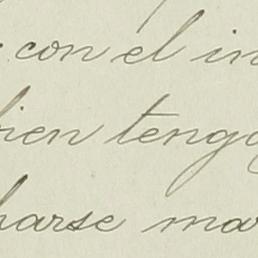 con el in
bien tenga
harse mar